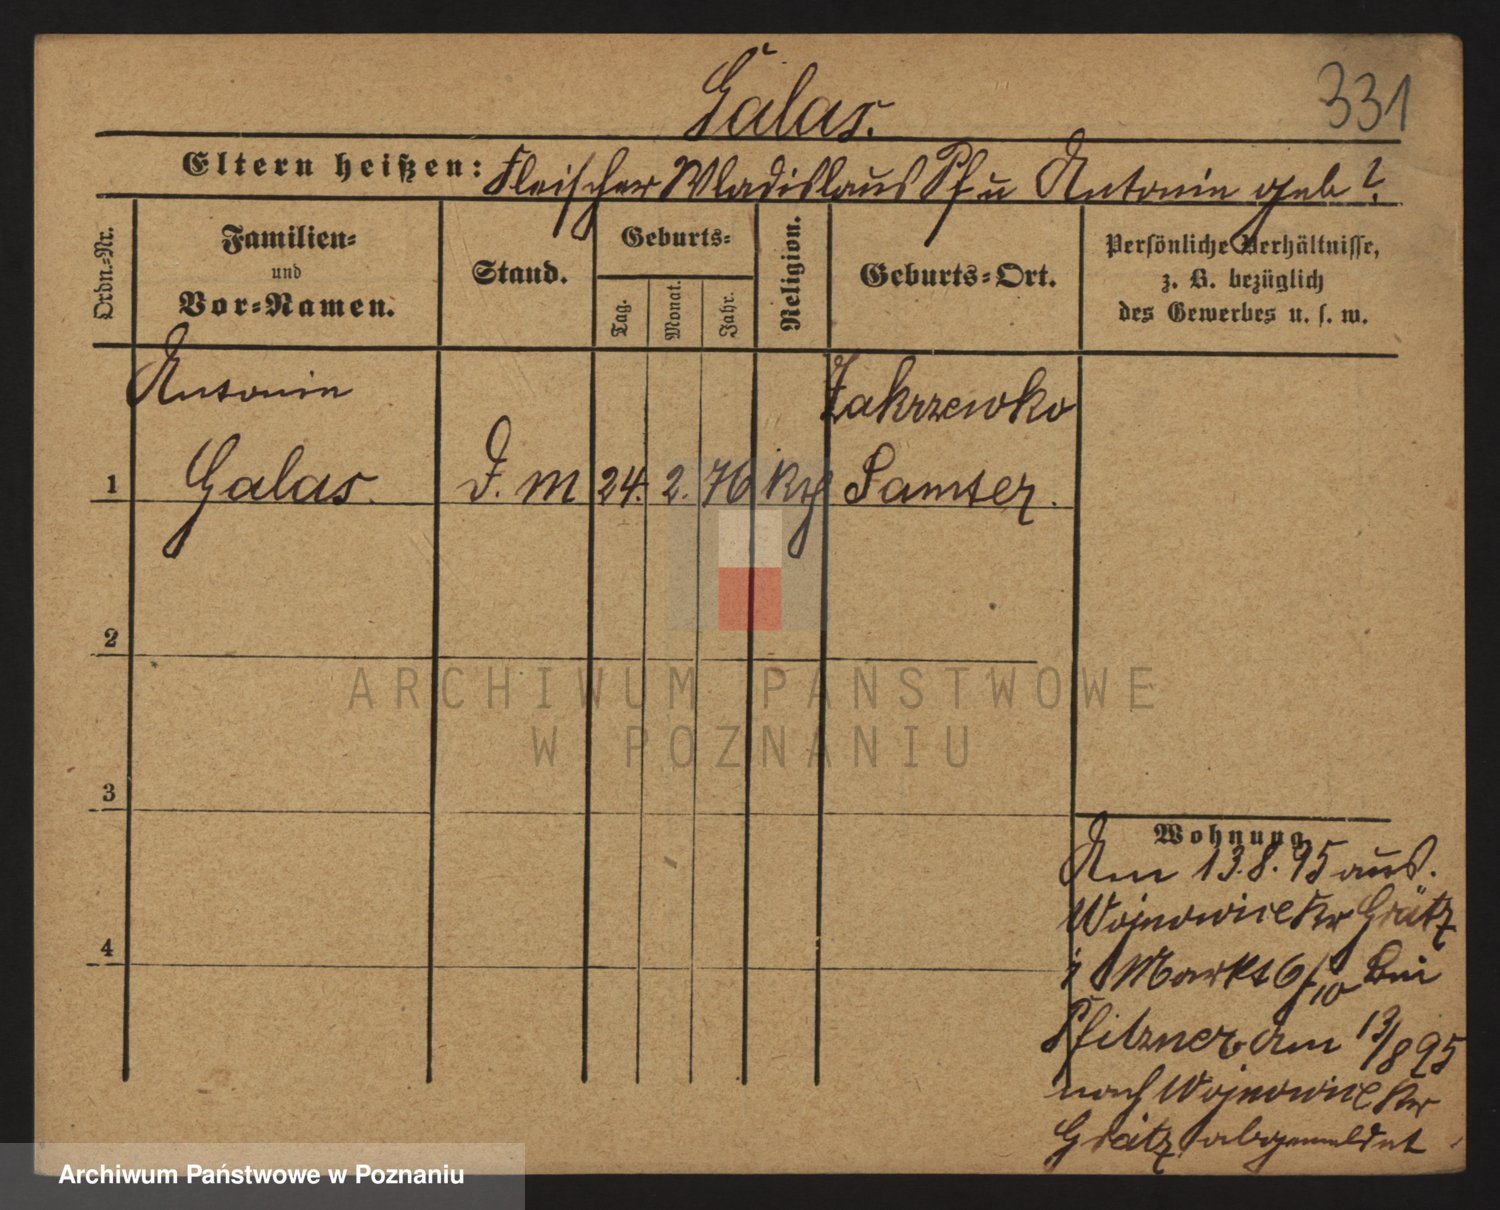 331
Galas.
Eltern heißen: Fleischer Wladislaus Pf u Antonie geb?
Ordn.-Nr.
Familien-
und
Vor-Namen.
Stand.
Geburts-
Tag.
Monat.
Jahr.
Religion.
Geburts-Ort.
Persönliche Verhältnisse,
z. B. bezüglich
des Gewerbes u. s. w.
Antonie
Zakrzewko
1 Galas. D. m 24. 2. 76 Samter.
2
3
4
ARCHIWUM PAŃSTWOWE
W POZNANIU
Wohnung
Am 13.8.95 aus.
Wojnowice Kr Grätz
Markt 6/10 bei
Pfitzner am 13/8 95
nach Wojnowice Kr
Grätz abgemeldet
Archiwum Państwowe w Poznaniu